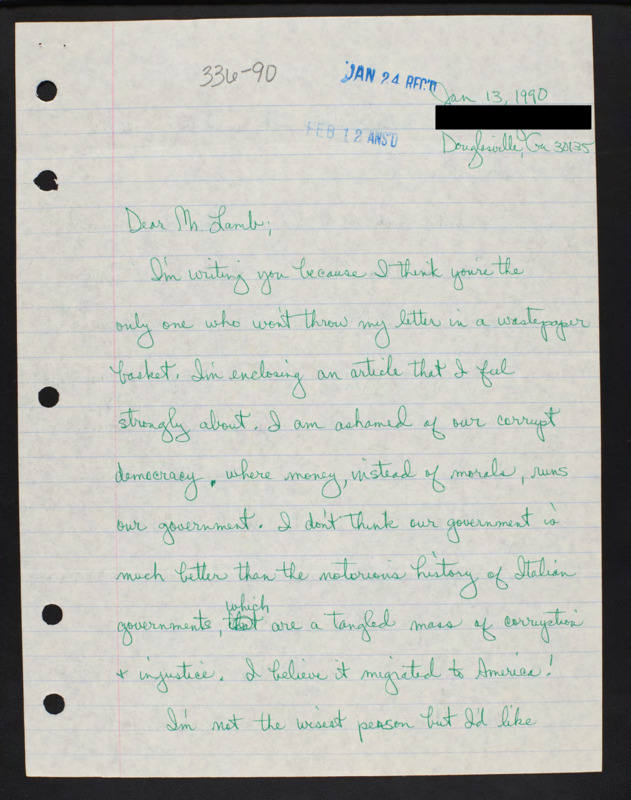 336-90
JAN 24 REC'D
Jan 13, 1990
FEB 12 ANS'D
Douglasville, Ga 30135
Dear Mr. Lamb;
I'm writing you because I think you're the
only one who won't throw my letter in a wastepaper
basket. I'm enclosing an article that I feel
strongly about. I am ashamed of our corrupt
democracy, where money, instead of morals, runs
our government. I don't think our government is
much better than the notorious history of Italian
which
governments, that are a tangled mass of corruption
+ injustice. I believe it migrated to America!
I'm not the wisest person but I'd like